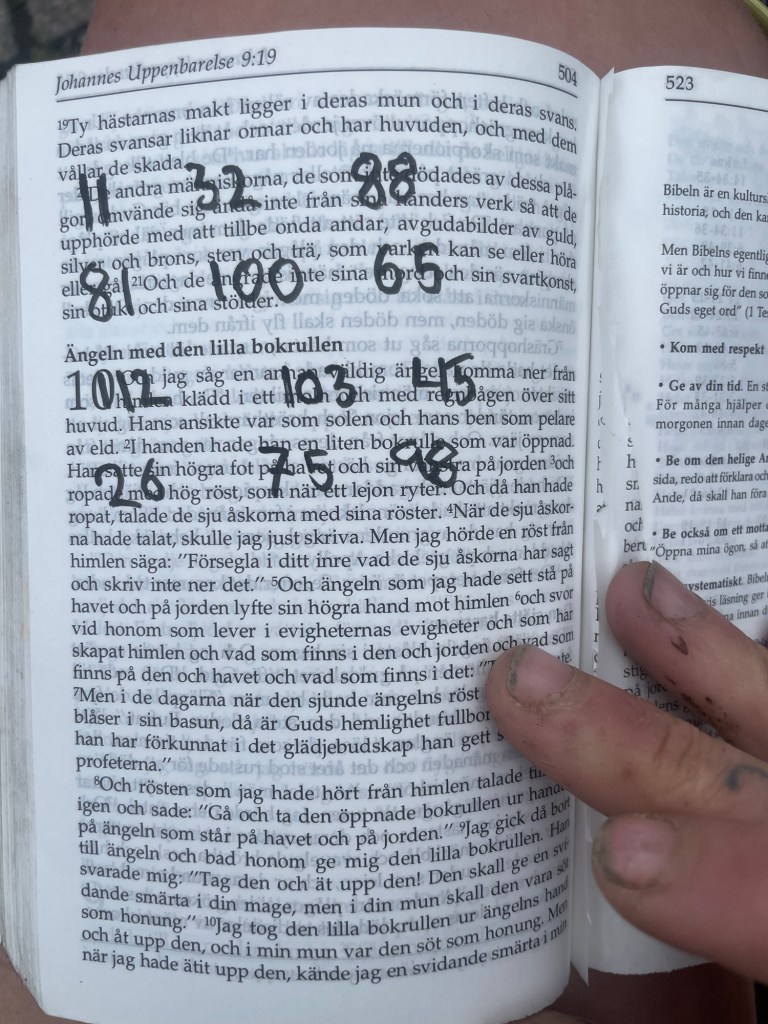 Johannes Uppenbarelse 9:19
504
¹⁹Ty hästarnas makt ligger i deras mun och i deras svans.
Deras svansar liknar ormar och har huvuden, och med dem
vållar de skada.
11 32 88
andra människorna, de som inte dödades av dessa plå-
gor, omvände sig ändå inte från sina händers verk så att de
upphörde med att tillbe onda andar, avgudabilder av guld,
silver och brons, sten och trä, som varken kan se eller höra
81 100 65
eller gå. ²¹Och de ångrade inte sina mord och sin svartkonst,
sin otukt och sina stölder.
Ängeln med den lilla bokrullen
10 Och jag såg en annan väldig ängel komma ner från
12 103 45
himlen klädd i ett moln och med regnbågen över sitt
huvud. Hans ansikte var som solen och hans ben som pelare
av eld. ²I handen hade han en liten bokrulle som var öppnad.
26 75 98
Han satte sin högra fot på havet och sin vänstra på jorden ³och
ropade med hög röst, som när ett lejon ryter. Och då han hade
ropat, talade de sju åskorna med sina röster. ⁴När de sju åskor-
na hade talat, skulle jag just skriva. Men jag hörde en röst från
himlen säga: "Försegla i ditt inre vad de sju åskorna har sagt
och skriv inte ner det." ⁵Och ängeln som jag hade sett stå på
havet och på jorden lyfte sin högra hand mot himlen ⁶och svor
vid honom som lever i evigheternas evigheter och som har
skapat himlen och vad som finns i den och jorden och vad som
finns på den och havet och vad som finns i det:
⁷Men i de dagarna när den sjunde ängelns röst
blåser i sin basun, då är Guds hemlighet
han har förkunnat i det glädjebudskap han gett
profeterna."
⁸Och rösten som jag hade hört från himlen talade
igen och sade: "Gå och ta den öppnade bokrullen ur
på ängeln som står på havet och på jorden." ⁹Jag gick då bort
till ängeln och bad honom ge mig den lilla bokrullen. Han
svarade mig: "Tag den och ät upp den! Den skall ge en svi-
dande smärta i din mage, men i din mun skall den vara söt
som honung." ¹⁰Jag tog den lilla bokrullen ur ängelns hand
och åt upp den, och i min mun var den söt som honung. Men
när jag hade ätit upp den, kände jag en svidande smärta i min
523
Bibeln är en
historia, och den
Men Bibelns
vi är och hur vi
öppnar sig för den
Guds eget ord" (1
• Kom med respekt
• Ge av din tid. En
För många hjälper
morgonen innan
• Be om den helige
sida, redo att förklara
Ande, då skall han
• Be också om ett
"Öppna mina ögon, så